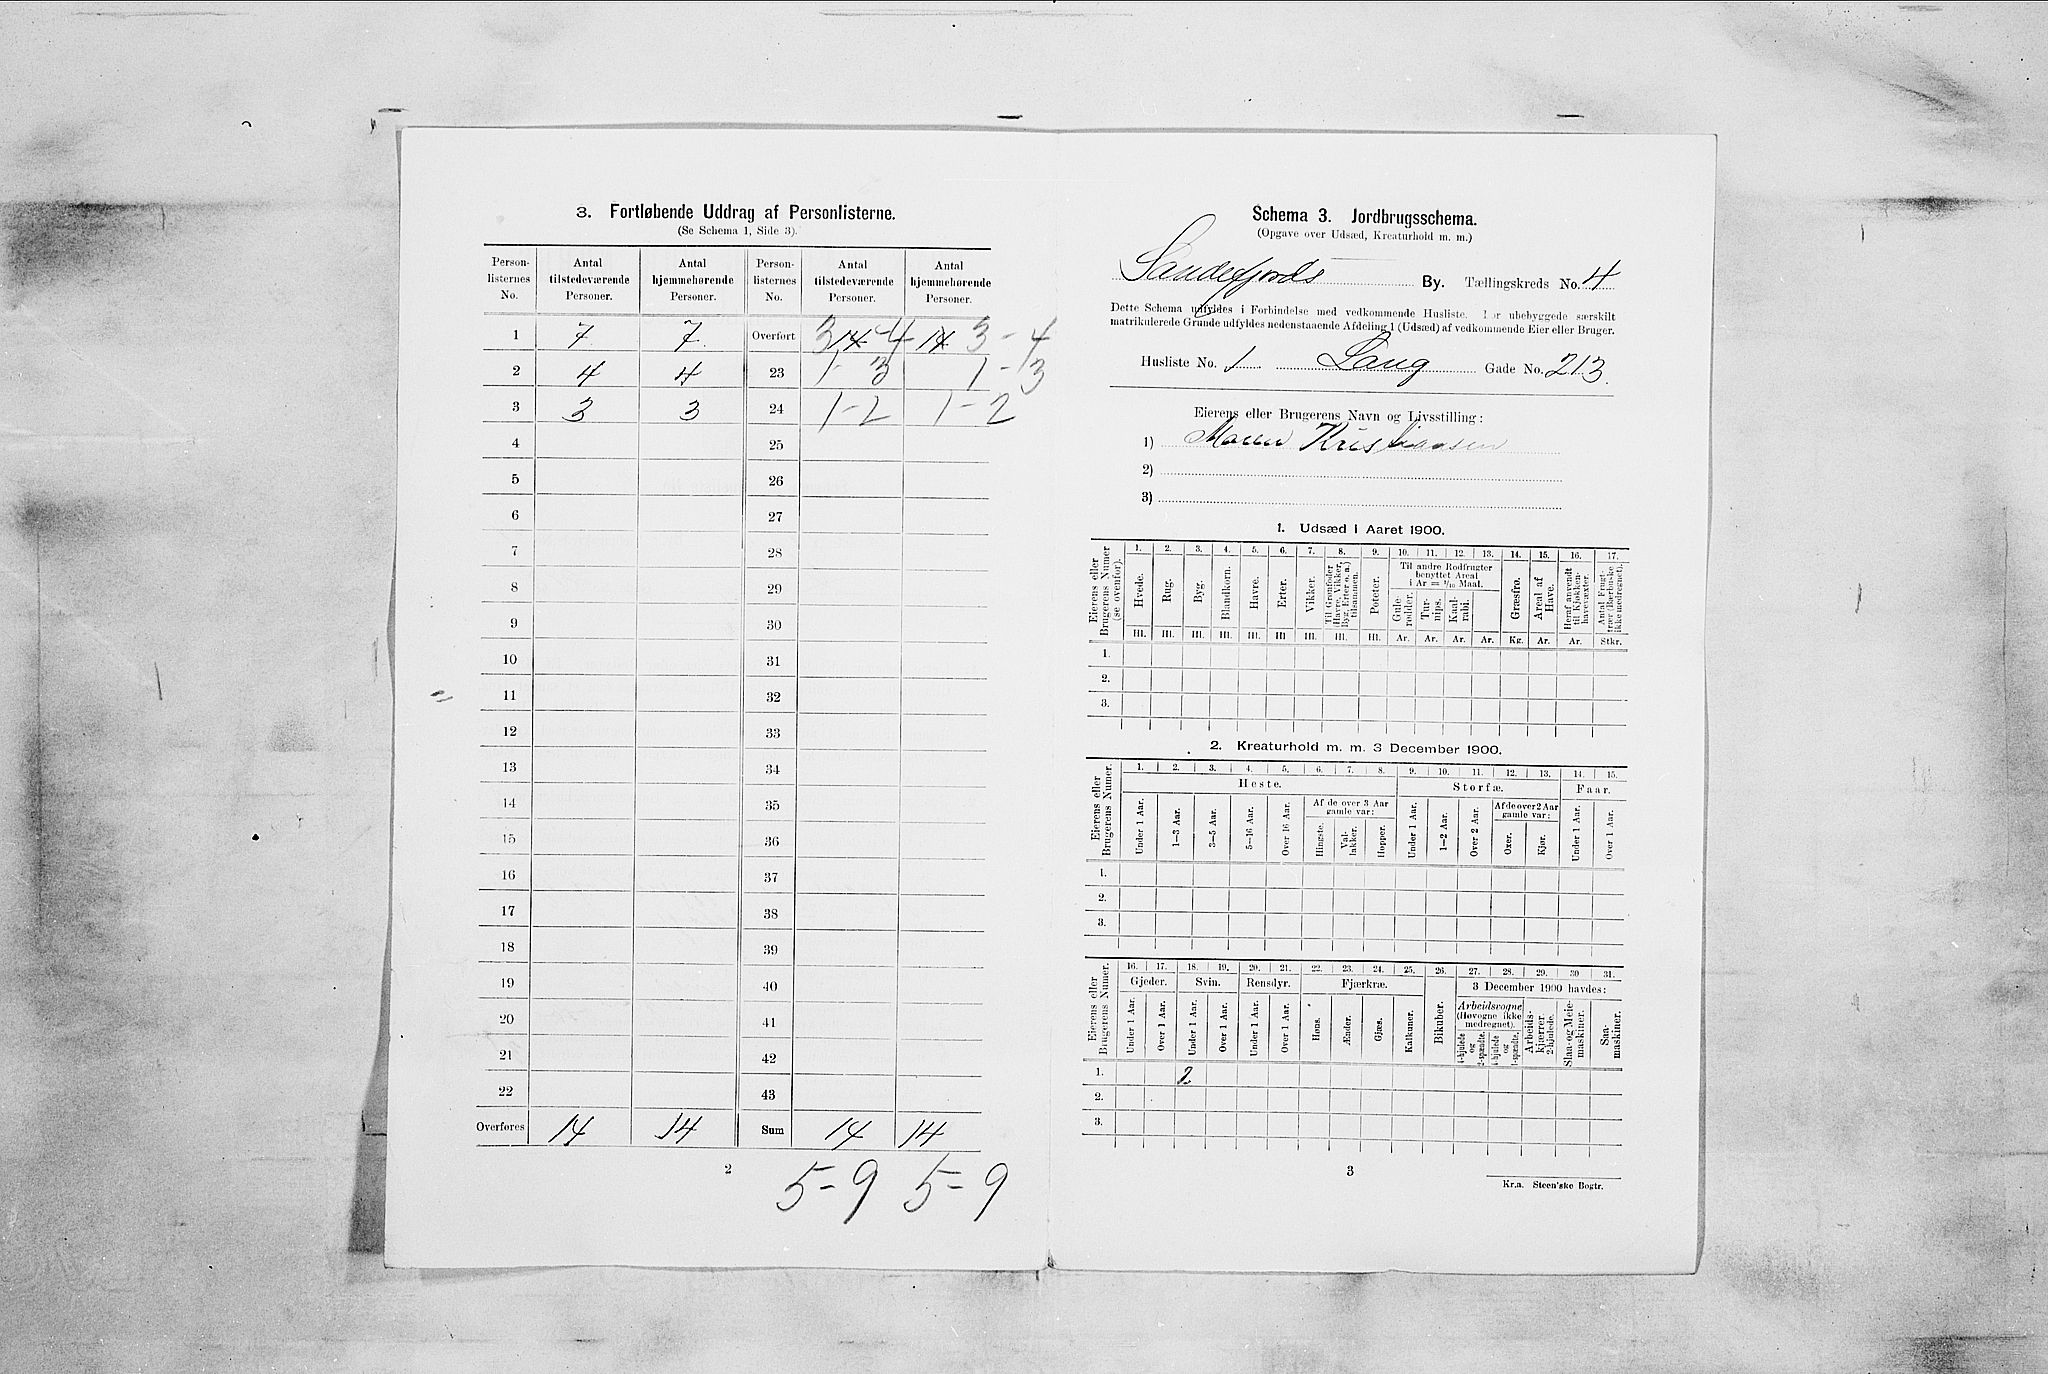 3. Fortløbende Uddrag af Personlisterne.
(Se Schema 1, Side 3).
Person-listernes No. | Antal tilstedeværende Personer. | Antal hjemmehørende Personer. | Person-listernes No. | Antal tilstedeværende Personer. | Antal hjemmehørende Personer.
1 | 7 | 7 | Overført | 14 3-4 | 14 3-4
2 | 4 | 4 | 23 | 1-3 | 1-3
3 | 3 | 3 | 24 | 1-2 | 1-2
4 | 25
5 | 26
6 | 27
7 | 28
8 | 29
9 | 30
10 | 31
11 | 32
12 | 33
13 | 34
14 | 35
15 | 36
16 | 37
17 | 38
18 | 39
19 | 40
20 | 41
21 | 42
22 | 43
Overføres | 14 | 14 | Sum | 14 | 14
5-9 5-9
2
Schema 3. Jordbrugsschema.
(Opgave over Udsæd, Kreaturhold m. m.)
Sandefjords By. Tællingskreds No. 4
Dette Schema udfyldes i Forbindelse med vedkommende Husliste. For ubebyggede særskilt
matrikulerede Grunde udfyldes nedenstaaende Afdeling 1 (Udsæd) af vedkommende Eier eller Bruger.
Husliste No. 1 Laug Gade No. 213.
Eierens eller Brugerens Navn og Livsstilling:
1) Maren Kristiansen
2)
3)
1. Udsæd i Aaret 1900.
Eierens eller Brugerens Numer (se ovenfor).
1. 2. 3. 4. 5. 6. 7. 8. 9. 10. 11. 12. 13. 14. 15. 16. 17.
Hvede. Rug. Byg. Blandkorn. Havre. Erter. Vikker. Til Grønfoder (Havre, Vikker, Byg, Erter o. a.) tilsammen. Poteter.
Til andre Rodfrugter benyttet Areal i Ar = 1/10 Maal.
Gule-rødder. Tur-nips. Kaal-rabi.
Græsfrø. Areal af Have. Heraf anvendt til Kjøkken-havevæxter. Antal Frugt-træer (Bærbuske ikke medregnet).
Hl. Hl. Hl. Hl. Hl. Hl Hl. Hl. Hl. Ar. Ar. Ar. Ar. Kg. Ar. Ar. Stkr.
1.
2.
3.
2. Kreaturhold m. m. 3 December 1900.
Eierens eller Brugerens Numer.
1. 2. 3. 4. 5. 6. 7. 8. 9. 10. 11. 12. 13. 14. 15.
Heste. Storfæ. Faar.
Af de over 3 Aar gamle var: Af de over 2 Aar gamle var:
Under 1 Aar. 1–3 Aar. 3–5 Aar. 5–16 Aar. Over 16 Aar. Hingste. Val-lakker. Hopper. Under 1 Aar. 1–2 Aar. Over 2 Aar. Oxer. Kjør. Under 1 Aar. Over 1 Aar.
1.
2.
3.
Eierens eller Brugerens Numer.
16. 17. 18. 19. 20. 21. 22. 23. 24. 25. 26. 27. 28. 29. 30 31.
Gjeder. Svin. Rensdyr. Fjærkræ. 3 December 1900 havdes:
Under 1 Aar. Over 1 Aar. Under 1 Aar. Over 1 Aar. Under 1 Aar. Over 1 Aar. Høns. Ænder. Gjæs. Kalkuner. Bikuber.
Arbeidsvogne (Høvogne ikke medregnet).
4-hjulede og 2-spændte. 4-hjulede og 1-spændte. Arbeids-kjærrer, 2-hjulede. Slaa- og Meie-maskiner. Saa-maskiner.
1. 2
2.
3.
3
Kr.a. Steen'ske Bogtr.